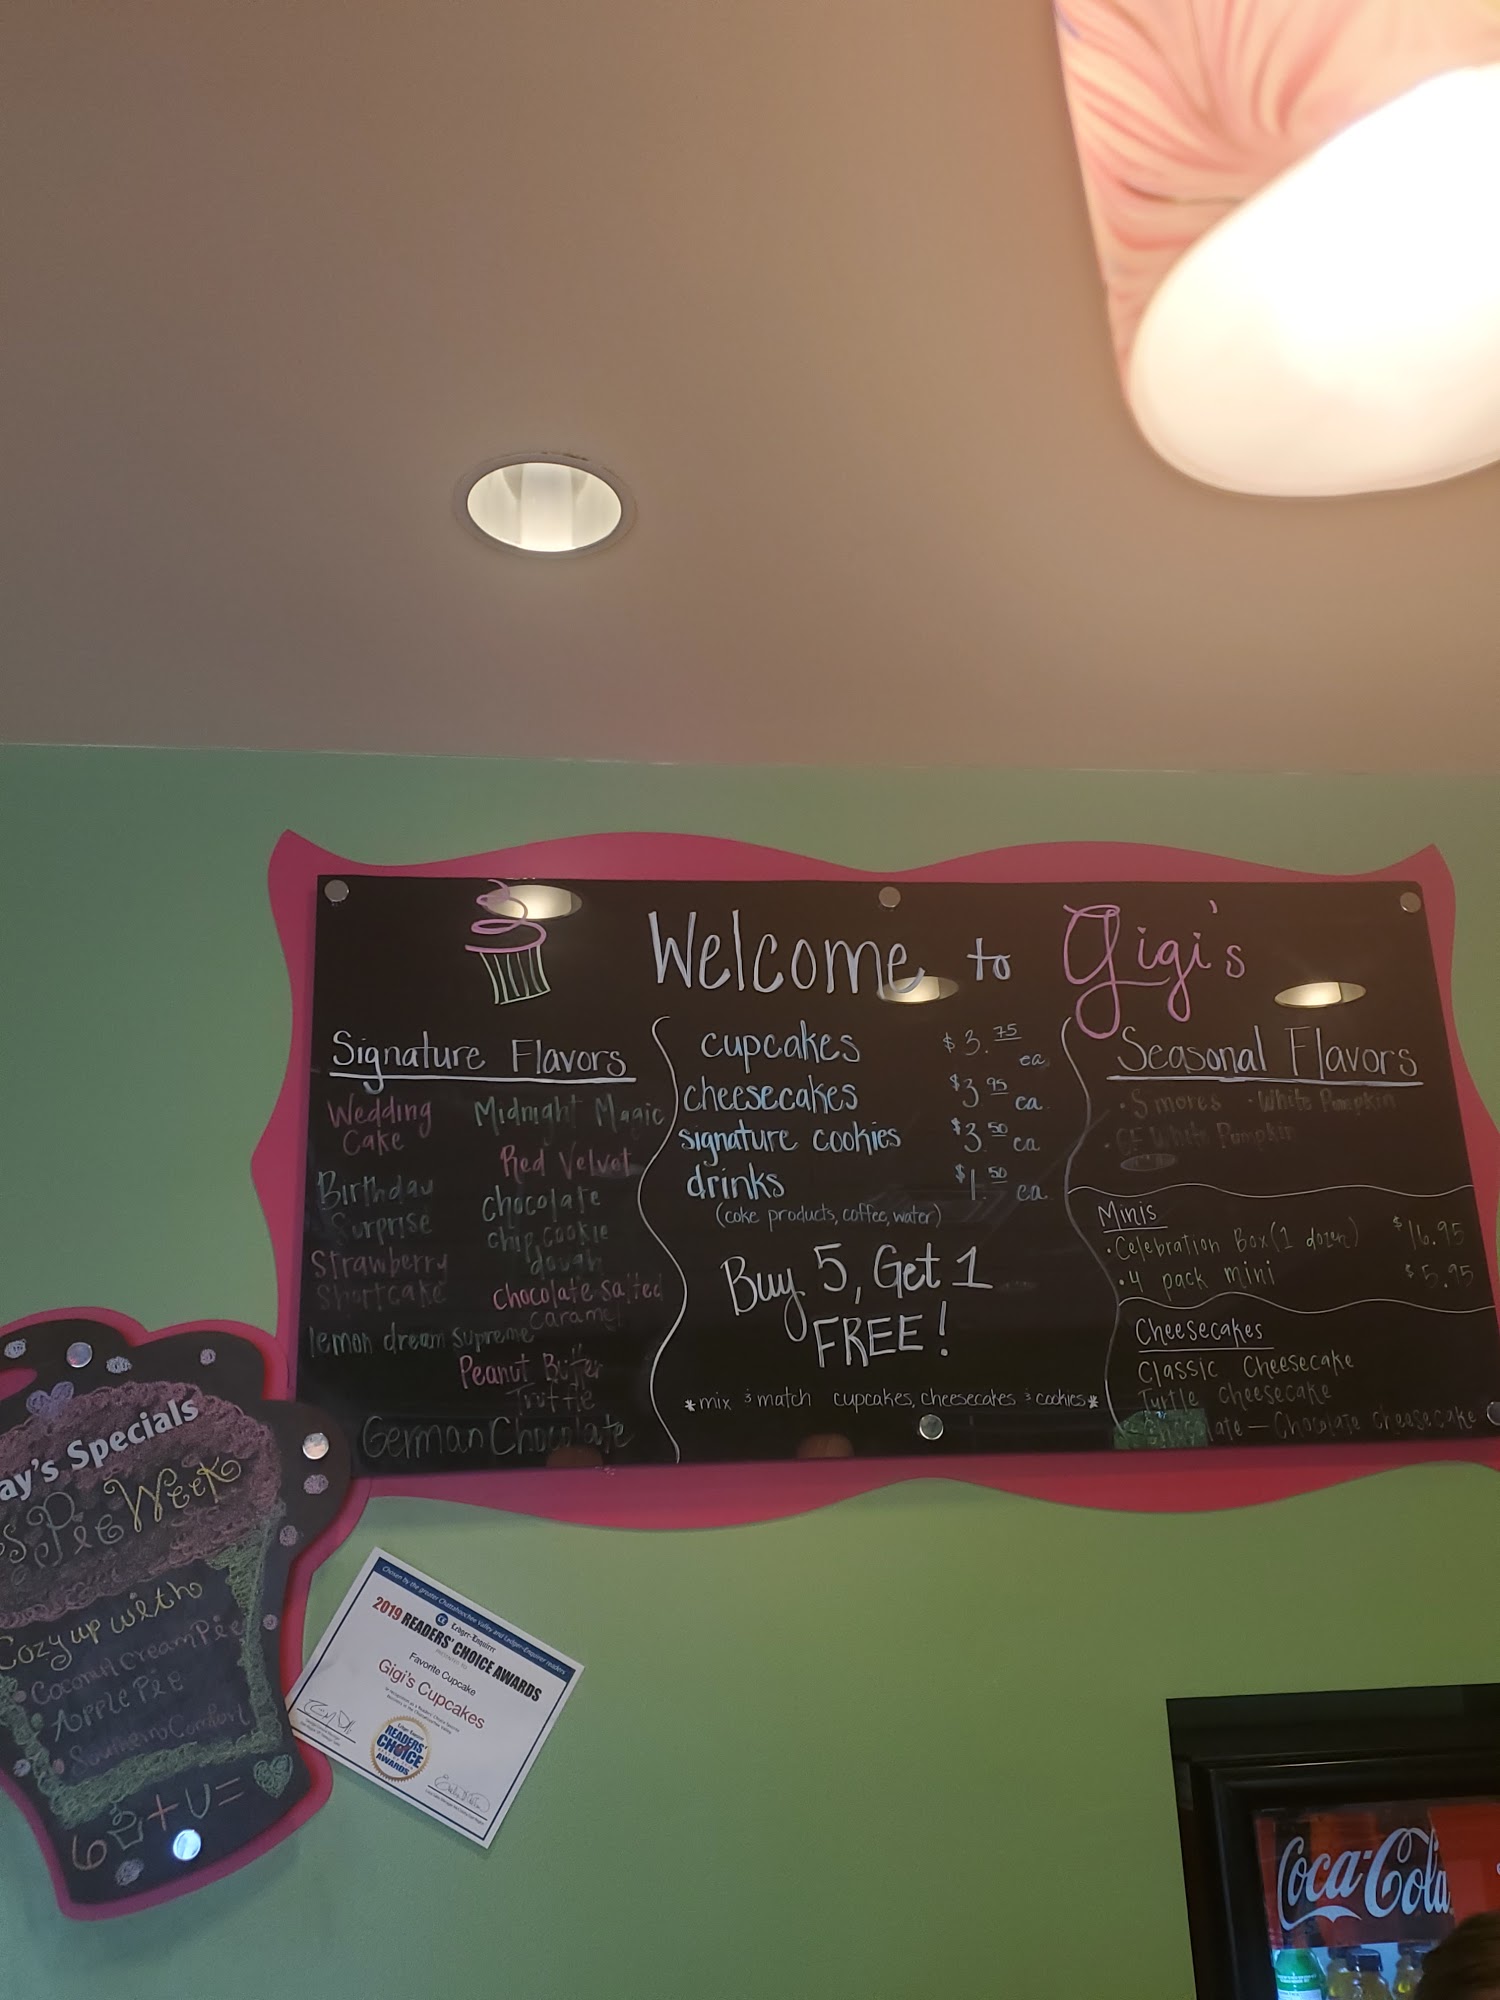 Welcome to Gigi's
Signature Flavors
Wedding
Cake
Birthday
Surprise
Strawberry
Shortcake
lemon dream supreme
Midnight Magic
Red Velvet
chocolate
chip cookie
dough
chocolate salted
caramel
Peanut Butter
Truffle
German Chocolate
cupcakes $3.75 ea
cheesecakes $3.95 ea
signature cookies $3.50 ea
drinks $1.50 ea
(coke products, coffee, water)
Buy 5, Get 1
FREE!
*mix & match cupcakes, cheesecakes & cookies*
Seasonal Flavors
• S'mores • White Pumpkin
• GF White Pumpkin
Minis
• Celebration Box (1 dozen) $16.95
• 4 pack mini $5.95
Cheesecakes
Classic Cheesecake
Turtle cheesecake
Chocolate — Chocolate cheesecake
ay's Specials
s Pie Week
Cozy up with
Coconut Cream Pie
Apple Pie
Southern Comfort
6 + U =
Chosen by the greater Chattahoochee Valley and Ledger-Enquirer readers
Ledger-Enquirer
2019 READERS' CHOICE AWARDS
Favorite Cupcake
Gigi's Cupcakes
READERS'
CHOICE
AWARDS
Coca-Cola